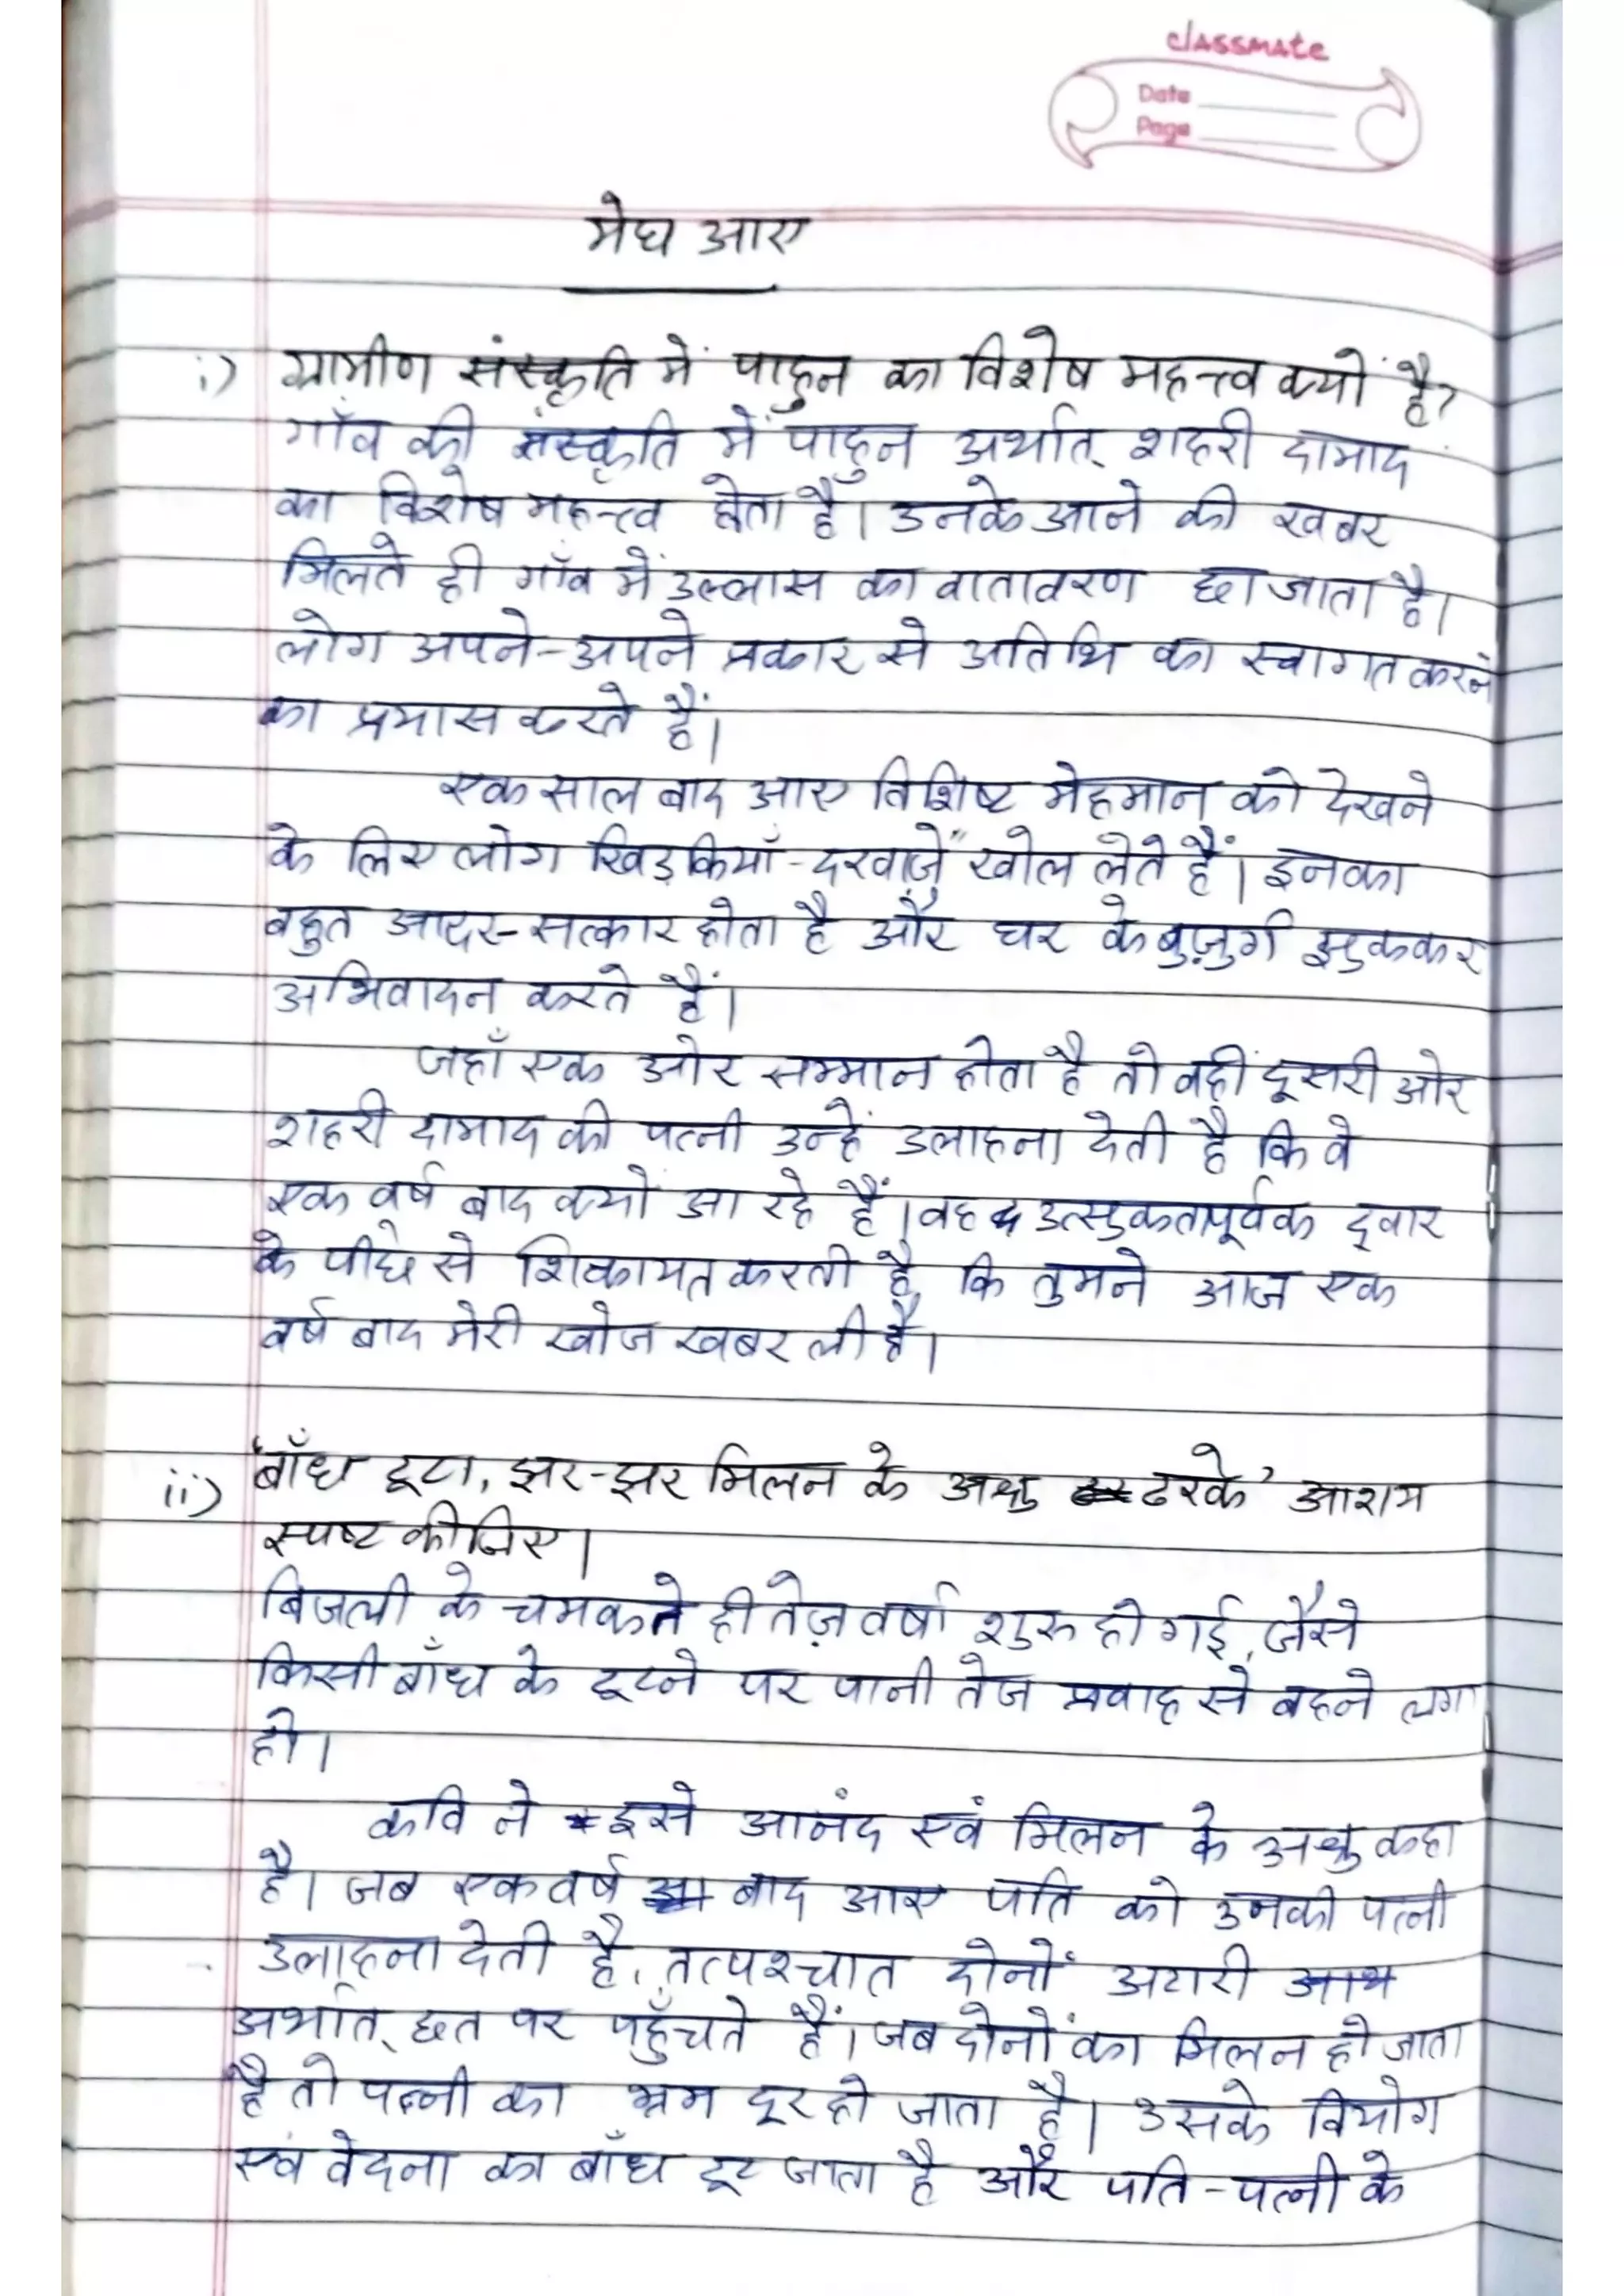 classmate
Date
Page
मेघ आए
i) ग्रामीण संस्कृति में पाहुन का विशेष महत्त्व क्यों है?
गाँव की संस्कृति में पाहुन अर्थात् शहरी दामाद
का विशेष महत्त्व होता है। उनके आने की खबर
मिलते ही गाँव में उल्लास का वातावरण छा जाता है।
लोग अपने-अपने प्रकार से अतिथि का स्वागत करने
का प्रयास करते हैं।
एक साल बाद आए विशिष्ट मेहमान को देखने
के लिए लोग खिड़कियाँ-दरवाजें खोल लेते हैं। इनका
बहुत आदर-सत्कार होता है और घर के बुज़ुर्ग झुककर
अभिवादन करते हैं।
जहाँ एक ओर सम्मान होता है तो वहीं दूसरी ओर
शहरी दामाद की पत्नी उन्हें उलाहना देती है कि वे
एक वर्ष बाद क्यों आ रहे हैं। वह उत्सुकतापूर्वक द्वार
के पीछे से शिकायत करती है कि तुमने आज एक
वर्ष बाद मेरी खोज खबर ली है।
ii) 'बाँध टूटा, झर-झर मिलन के अश्रु ढरके' आशय
स्पष्ट कीजिए।
बिजली के चमकते ही तेज़ वर्षा शुरू हो गई, जैसे
किसी बाँध के टूटने पर पानी तेज प्रवाह से बहने लगा
हो।
कवि ने इसे आनंद एवं मिलन के अश्रु कहा
है। जब एक वर्ष बाद आए पति को उनकी पत्नी
उलाहना देती है, तत्पश्चात दोनों अटारी
अर्थात् छत पर पहुँचते हैं। जब दोनों का मिलन हो जाता
है तो पत्नी का भ्रम दूर हो जाता है। उसके वियोग
एवं वेदना का बाँध टूट जाता है और पति-पत्नी के